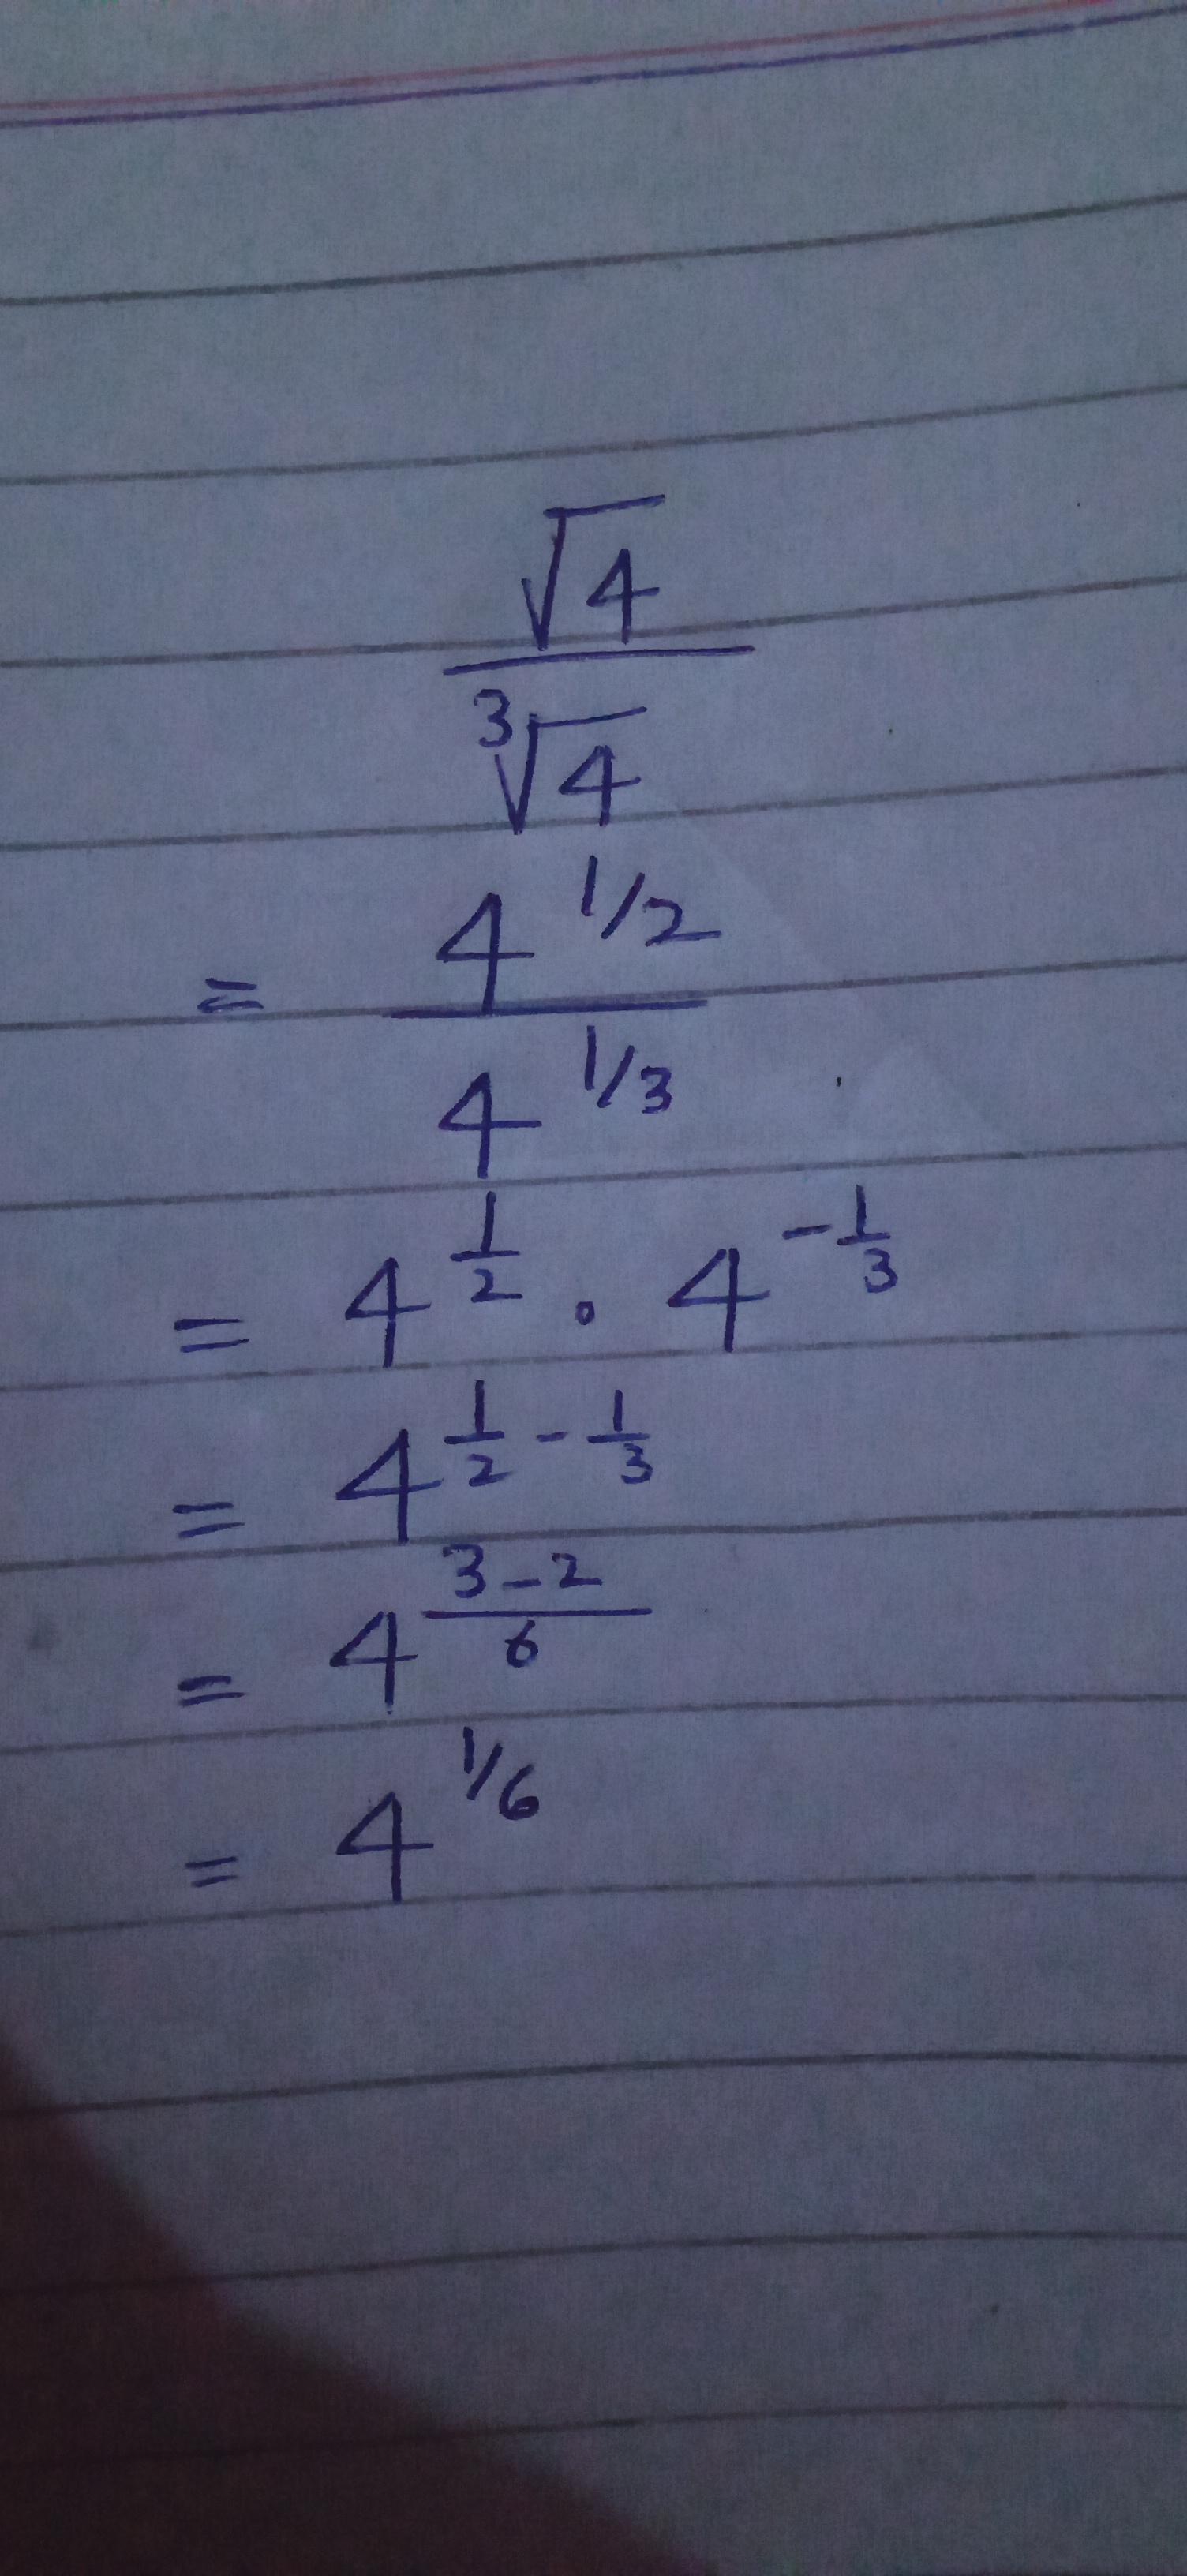 √4 / ³√4
= 4^1/2 / 4^1/3
= 4^(1/2) · 4^(-1/3)
= 4^(1/2 - 1/3)
= 4^((3-2)/6)
= 4^1/6